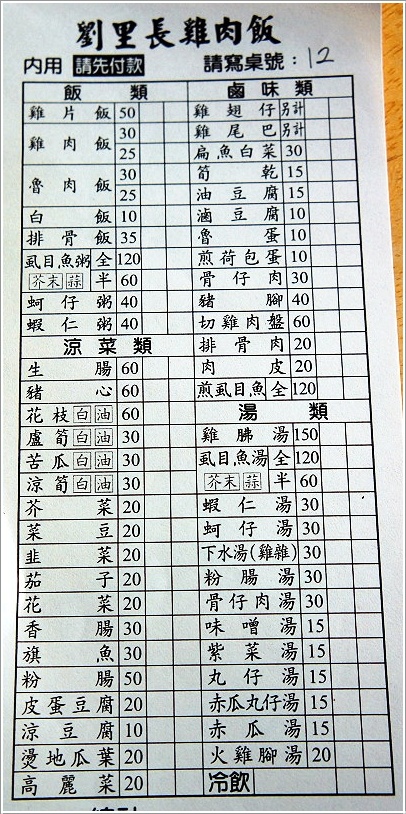 劉里長雞肉飯
內用 請先付款 請寫桌號：12
飯類
雞片飯 50
雞肉飯 30
25
魯肉飯 30
25
白飯 10
排骨飯 35
虱目魚粥 全 120
芥末 蒜 半 60
蚵仔粥 40
蝦仁粥 40
涼菜類
生腸 60
豬心 60
花枝 白 油 60
蘆筍 白 油 30
苦瓜 白 油 30
涼筍 白 油 30
芥菜 20
菜豆 20
韭菜 20
茄子 20
花菜 20
香腸 30
旗魚 30
粉腸 50
皮蛋豆腐 20
涼豆腐 10
燙地瓜葉 20
高麗菜 20
滷味類
雞翅仔 另計
雞尾巴 另計
扁魚白菜 30
筍乾 15
油豆腐 15
滷豆腐 10
魯蛋 10
煎荷包蛋 10
骨仔肉 30
豬腳 40
切雞肉盤 60
排骨肉 20
肉皮 20
煎虱目魚 全 120
湯類
雞腨湯 150
虱目魚湯 全 120
芥末 蒜 半 60
蝦仁湯 30
蚵仔湯 30
下水湯(雞雜) 30
粉腸湯 30
骨仔肉湯 30
味噌湯 15
紫菜湯 15
丸仔湯 15
赤瓜丸仔湯 15
赤瓜湯 15
火雞腳湯 20
冷飲